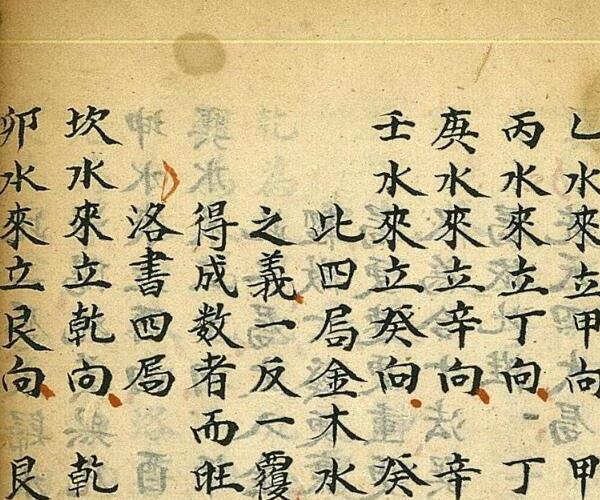 乙水來立甲向 甲
丙水來立丁向 丁
庚水來立辛向 辛
壬水來立癸向 癸
此四局金木水
之義一反一覆
得成数者而旺
洛書四局
坎水來立乾向 乾
卯水來立艮向 艮